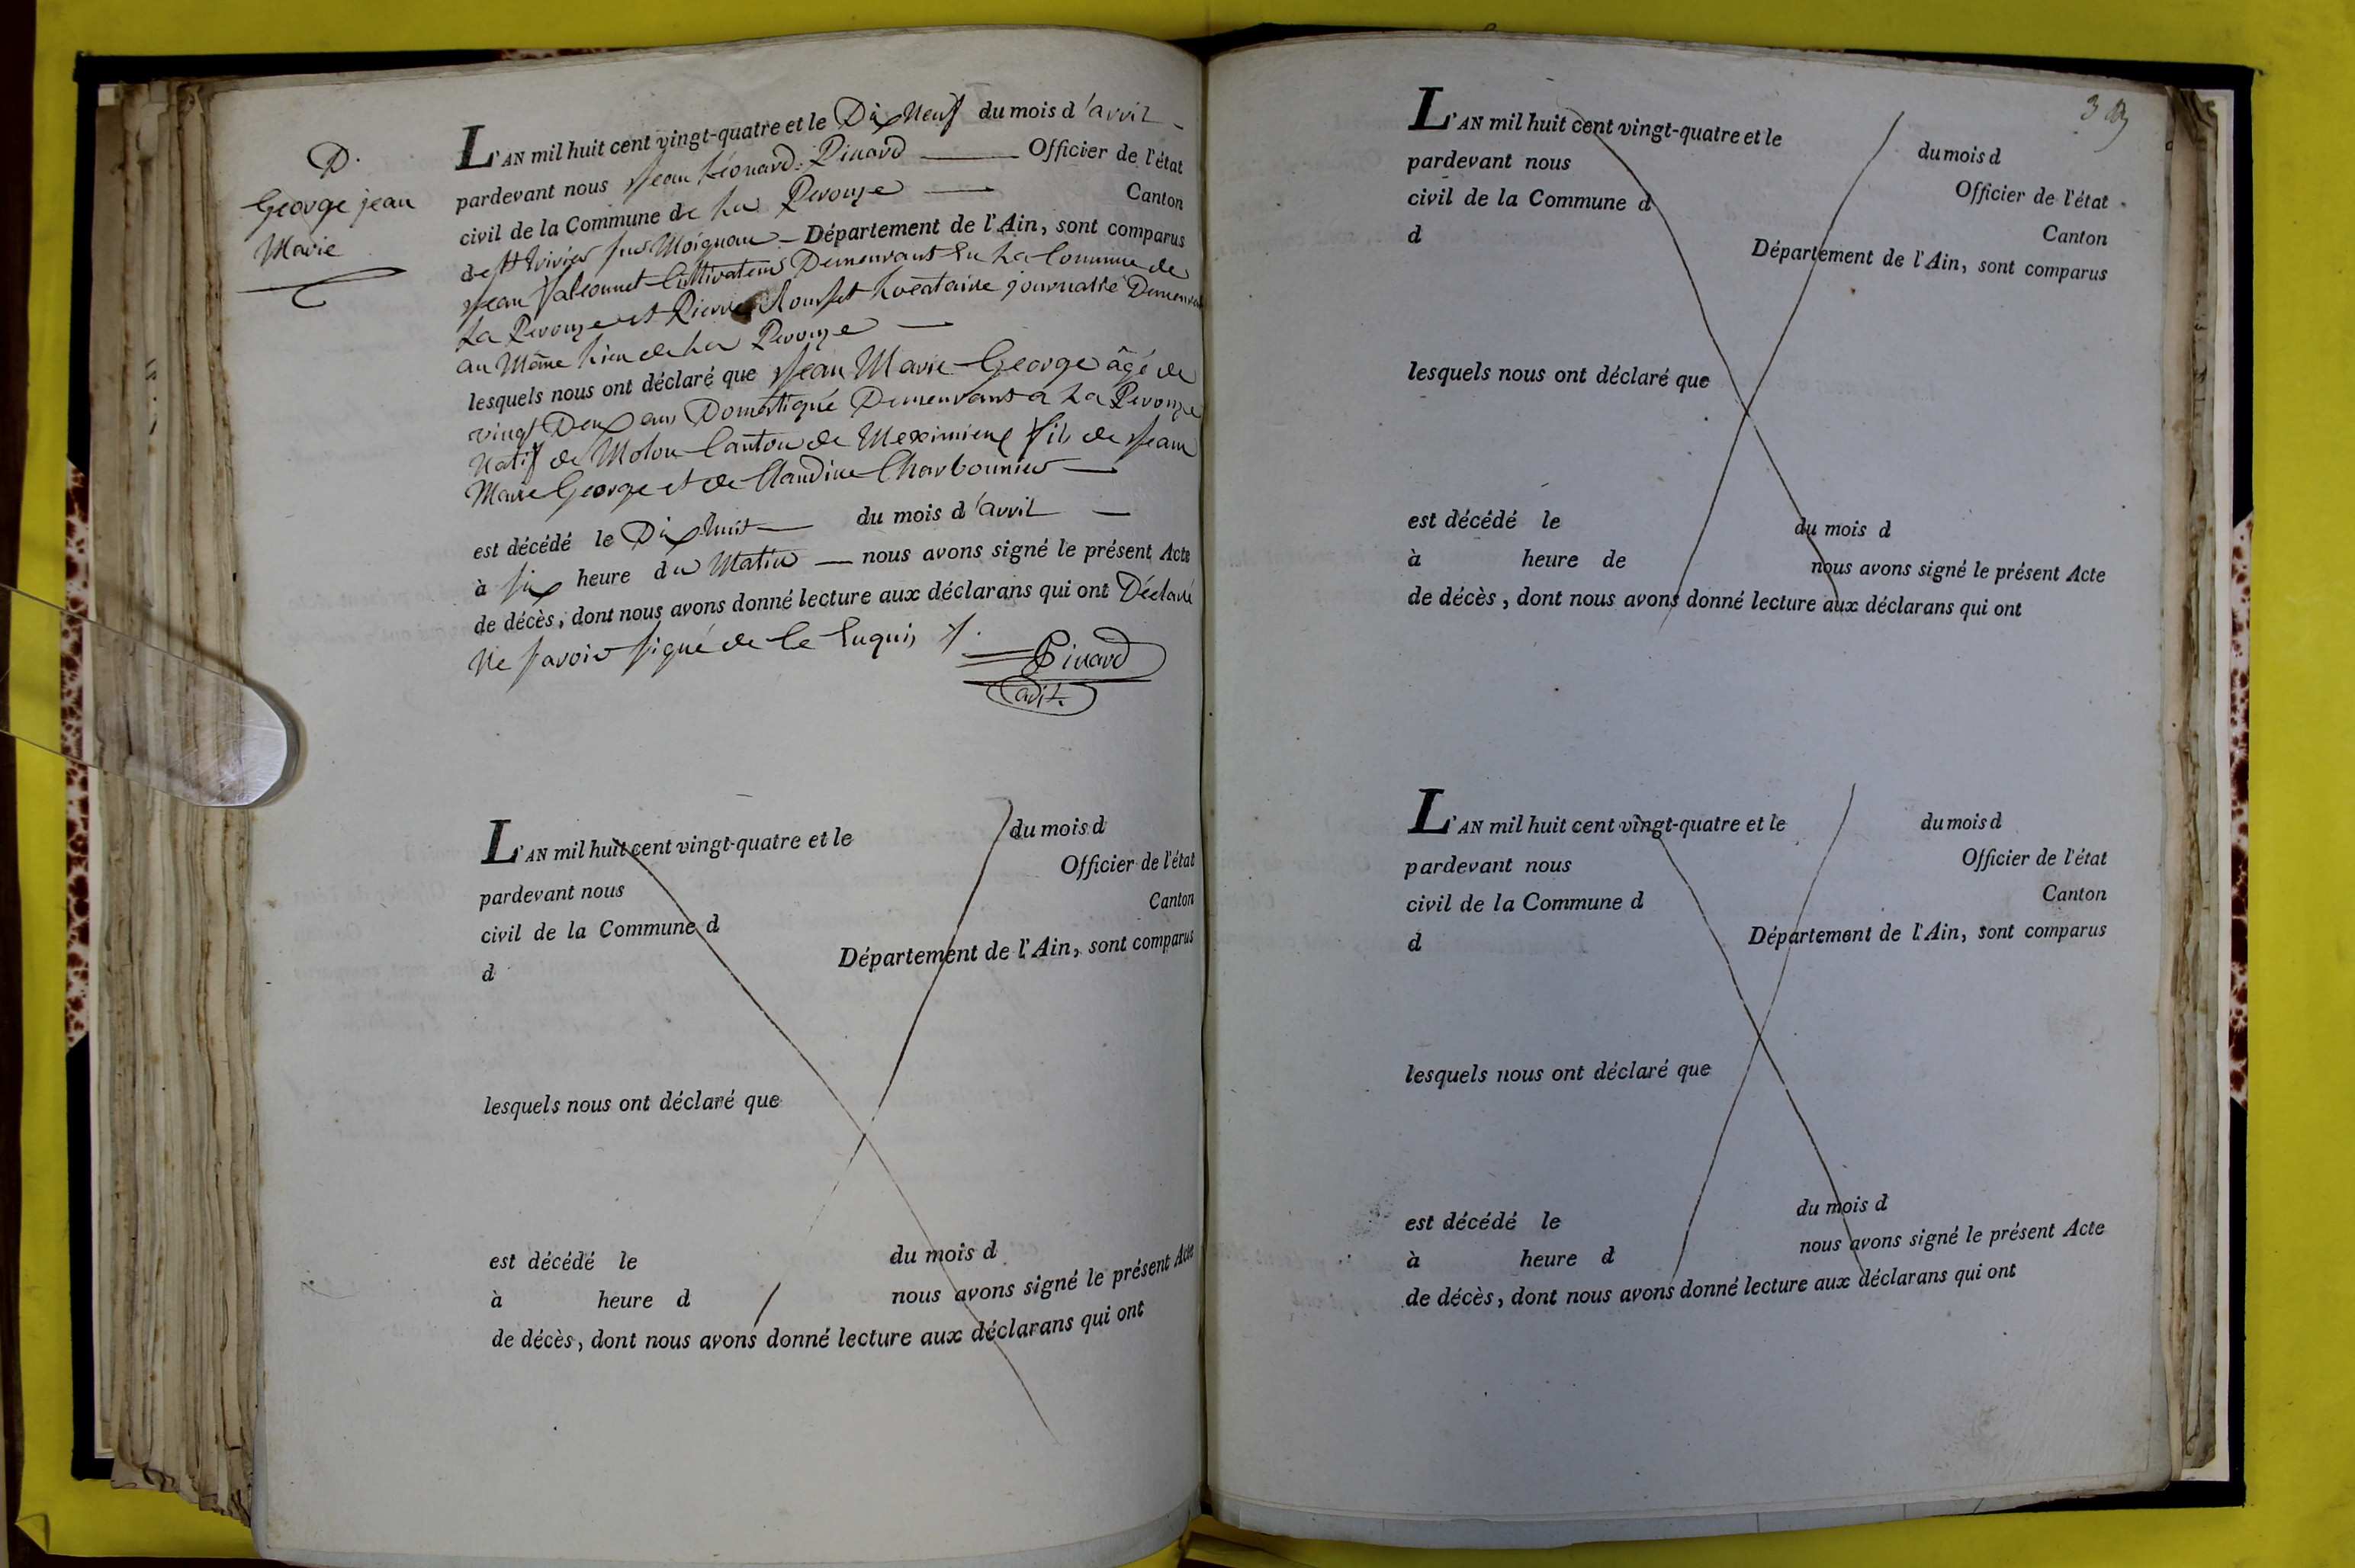 D.
George jean
Marie
L'AN mil huit cent vingt-quatre et le Dix Neuf du mois d'avril
pardevant nous Jean Léonard Pinard Officier de l'état
civil de la Commune de La Perouze Canton
de St trivier sur Moignan Département de l'Ain, sont comparus
Jean Cultivateur Demeurant en La Commune de
La Perouze et Pierre Rousset Locataire journallié Demeurant
au Même Lieu de La Perouze
lesquels nous ont déclaré que Jean Marie George âgé de
vingt Deux ans Domestique Demeurant a La Perouze
Natif de Molon Canton de Meximieux fils de Jean
Marie George et de Claudine Charbonnier
est décédé le Dix huit du mois d'avril
à six heure du Matin nous avons signé le présent Acte
de décès, dont nous avons donné lecture aux déclarans qui ont Déclaré
Ne savoir signé de Ce Enquis
Pinard
adjt.
L'AN mil huit cent vingt-quatre et le du mois d
pardevant nous Officier de l'état
civil de la Commune d Canton
d Département de l'Ain, sont comparus
lesquels nous ont déclaré que
est décédé le du mois d
à heure d nous avons signé le présent Acte
de décès, dont nous avons donné lecture aux déclarans qui ont
L'AN mil huit cent vingt-quatre et le du mois d
pardevant nous Officier de l'état
civil de la Commune d Canton
d Département de l'Ain, sont comparus
lesquels nous ont déclaré que
est décédé le du mois d
à heure de nous avons signé le présent Acte
de décès, dont nous avons donné lecture aux déclarans qui ont
L'AN mil huit cent vingt-quatre et le du mois d
pardevant nous Officier de l'état
civil de la Commune d Canton
d Département de l'Ain, sont comparus
lesquels nous ont déclaré que
est décédé le du mois d
à heure d nous avons signé le présent Acte
de décès, dont nous avons donné lecture aux déclarans qui ont